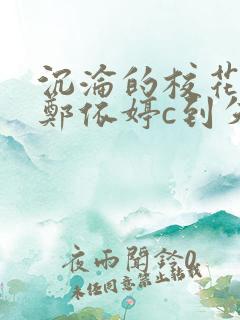 沉淪的校花
鄭依婷c到失
夜雨聞鈴0
未经同意禁止转载